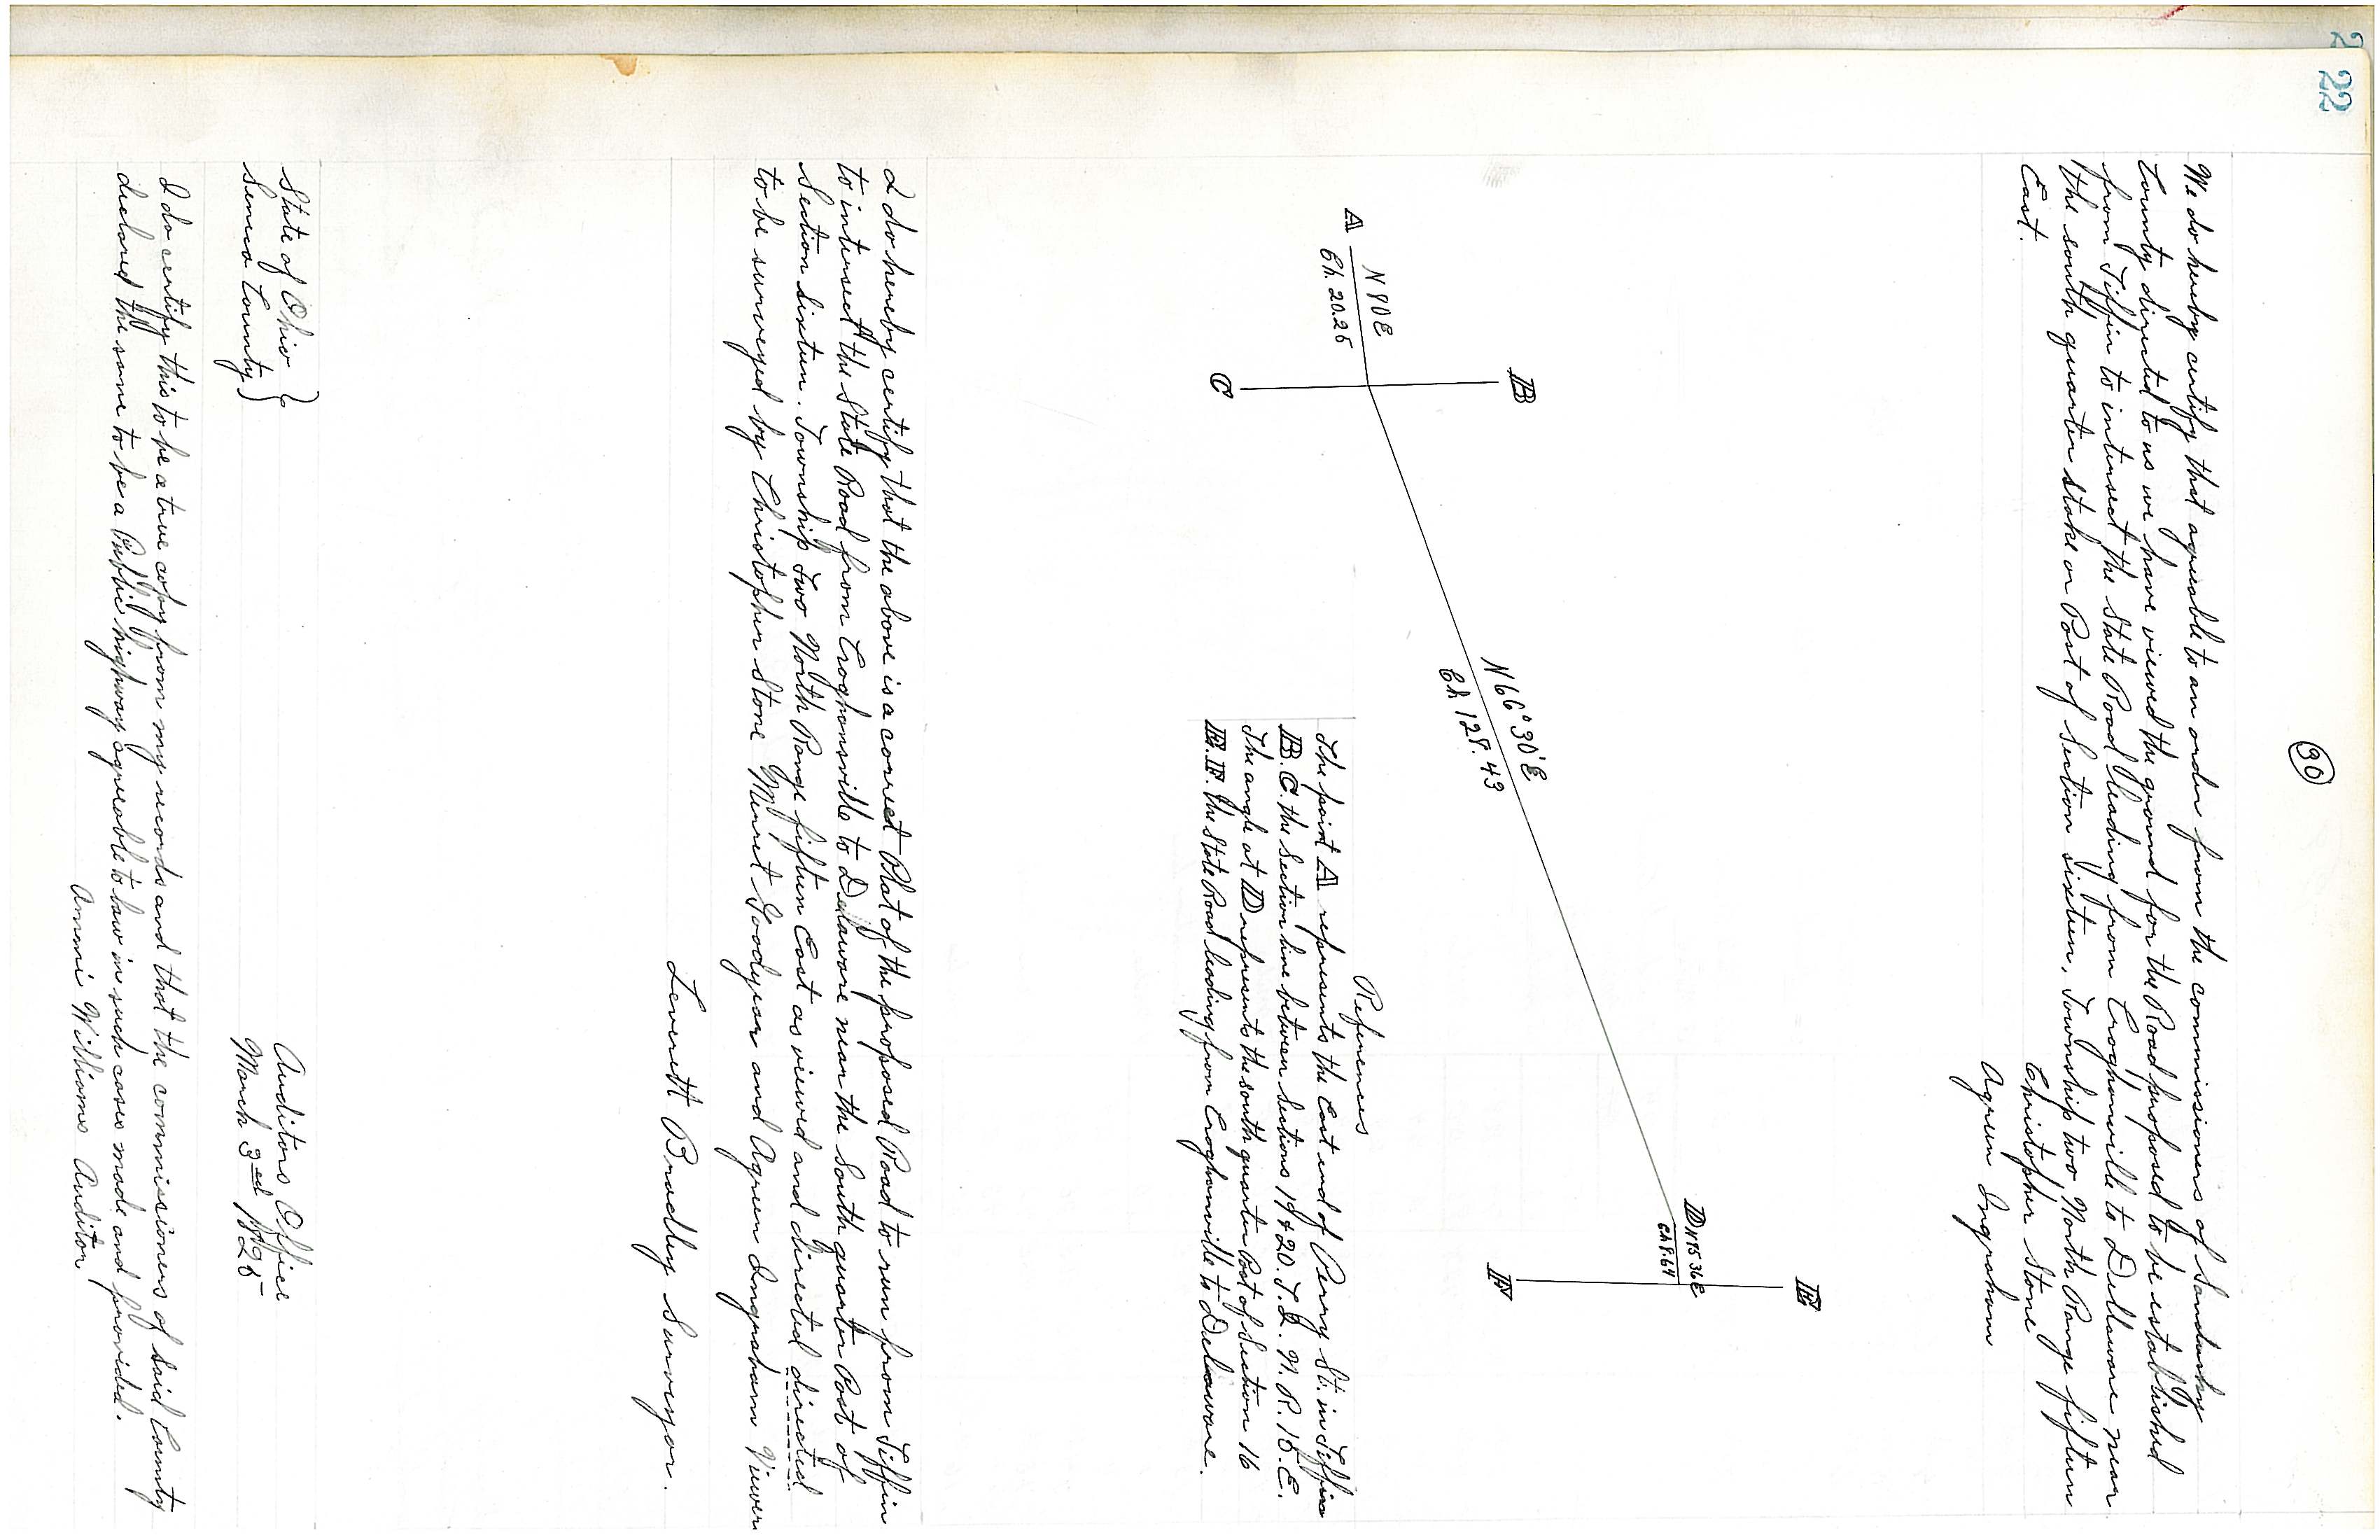 22
30
We do hereby certify that agreeable to an order from the commissioners of Sandusky
County directed to us we have viewed the ground for the Road proposed to be established
from Tiffin to intersect the State Road leading from Croghanville to Dellaware near
the south quarter stake or Post of Section sixteen, Township two, North Range fifteen
East.
Christopher Stone
Agreen Ingraham
A
N 80 E
Ch. 20.25
B
C
N 66° 30' E
Ch 128.43
D N 85 36 E
Ch 8.64
E
F
References
The point A represents the East end of Perry St. in Tiffin
B.C. the Section line between Sections 19 & 20. T. 2. N. R. 15. E.
The angle at D represents the south quarter Post of Section 16
E.F. the State Road leading from Croghanville to Delaware.
I do hereby certify that the above is a correct Plat of the proposed Road to run from Tiffin
to intersect the State Road from Croghansville to Delaware near the South quarter Post of
Section sixteen. Township two North Range fifteen East as viewed and directed directed
to be surveyed by Christopher Stone Goodyear and Agreen Ingraham Viewers
Leverett Bradley Surveyor.
State of Ohio }
Seneca County }
Auditors Office
March 3rd 1825
I do certify this to be a true copy from my records and that the commissioners of said County
declared the same to be a Public highway agreeable to law in such cases made and provided.
Ammi Williams Auditor